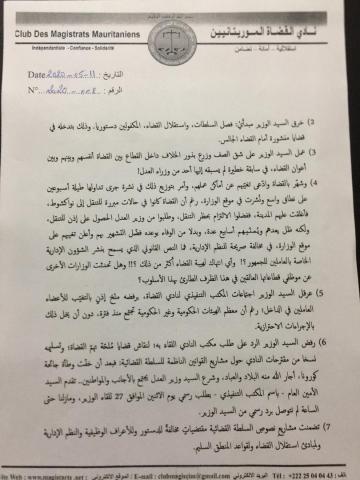 Club Des Magistrats Mauritaniens
نادي القضاة الموريتانيين
Indépendantale - Confiance - Solidarité
استقلالية - أمانة - تضامن
Date 2020-05-11 التاريخ :
N° 2020-008 الرقم:
2) خرق السيد الوزير مبدأيْ: فصل السلطات، واستقلال القضاء، المكفولين دستوريا، وذلك بتدخله في
قضايا منشورة أمام القضاء الجالس.
3) عمل السيد الوزير على شق الصف وزرع بذور الخلاف داخل القطاع بين القضاة أنفسهم وبينهم وبين
أعوان القضاء، في سابقة خطيرة لم يسبقه إليها أحد من وزراء العدل!
4) وشهّر بالقضاة وادّعى تغيبهم عن أماكن عملهم، وأمر بتوزيع ذلك في نشرة جرى تداولها طيلة أسبوعين
على نطاق واسع ونُشرت في موقع الوزارة، رغم أن القضاة كانوا في حالات مبررة للتنقل إلى نواكشوط،
فأغلقت عليهم المدينة، ففضلوا الالتزام بحظر التنقل، وطلبوا من وزير العدل الحصول على إذن للتنقل،
ولكنه ظل يعدهم ويُمنيهم أسابيع عدة، وبدلا من الوفاء بوعده فضّل التشهير بهم وأعلن تغيبهم على
موقع الوزارة، في مخالفة صريحة للنظم الإدارية، فما النص القانوني الذي يسمح بنشر الشؤون الإدارية
الخاصة بالعاملين للجمهور؟! وأي انتهاك لهيبة القضاء أكثر من ذلك؟! وهل تحدثت الوزارات الأخرى
عن موظفي قطاعاتها العالقين في هذا الظرف الطارئ بهذا الأسلوب؟
5) عرقل السيد الوزير اجتماعات المكتب التنفيذي لنادي القضاة، برفضه منح إذن بالتغيب للأعضاء
العاملين في الداخل؛ رغم أن معظم الهيئات الحكومية وغير الحكومية تجتمع منذ فترة، دون أن يخل ذلك
بالإجراءات الاحترازية.
6) رفض السيد الوزير الرد على طلب مكتب النادي اللقاء به؛ لنقاش قضايا مُلحّة تهمّ القضاة، وتسليمه
نسخا من مقترحات النادي حول مشاريع القوانين الناظمة للسلطة القضائية؛ فبعد أن خفّت وطأة جائحة
كورونا، أجار الله منه البلاد والعباد، وشرع السيد وزير العدل يجتمع بالأجانب والمواطنين.. تقدم السيد
الأمين العام - باسم المكتب التنفيذي - بطلب رسمي يوم الاثنين الموافق 27 للقاء الوزير، ومازلنا حتى
الساعة لم نتوصل برد رسمي من السيد الوزير.
7) تضمنت مشاريع نصوص السلطة القضائية مقتضيات مخالفةً للدستور وللأعراف الوظيفية والنظم الإدارية
ولمبادئ استقلال القضاء ولقواعد المنطق السليم.
الهاتف : Tél : +222 25 04 04 43 البريد الالكتروني : E-mail : الموقع الالكتروني : Site Web : www.magistrats